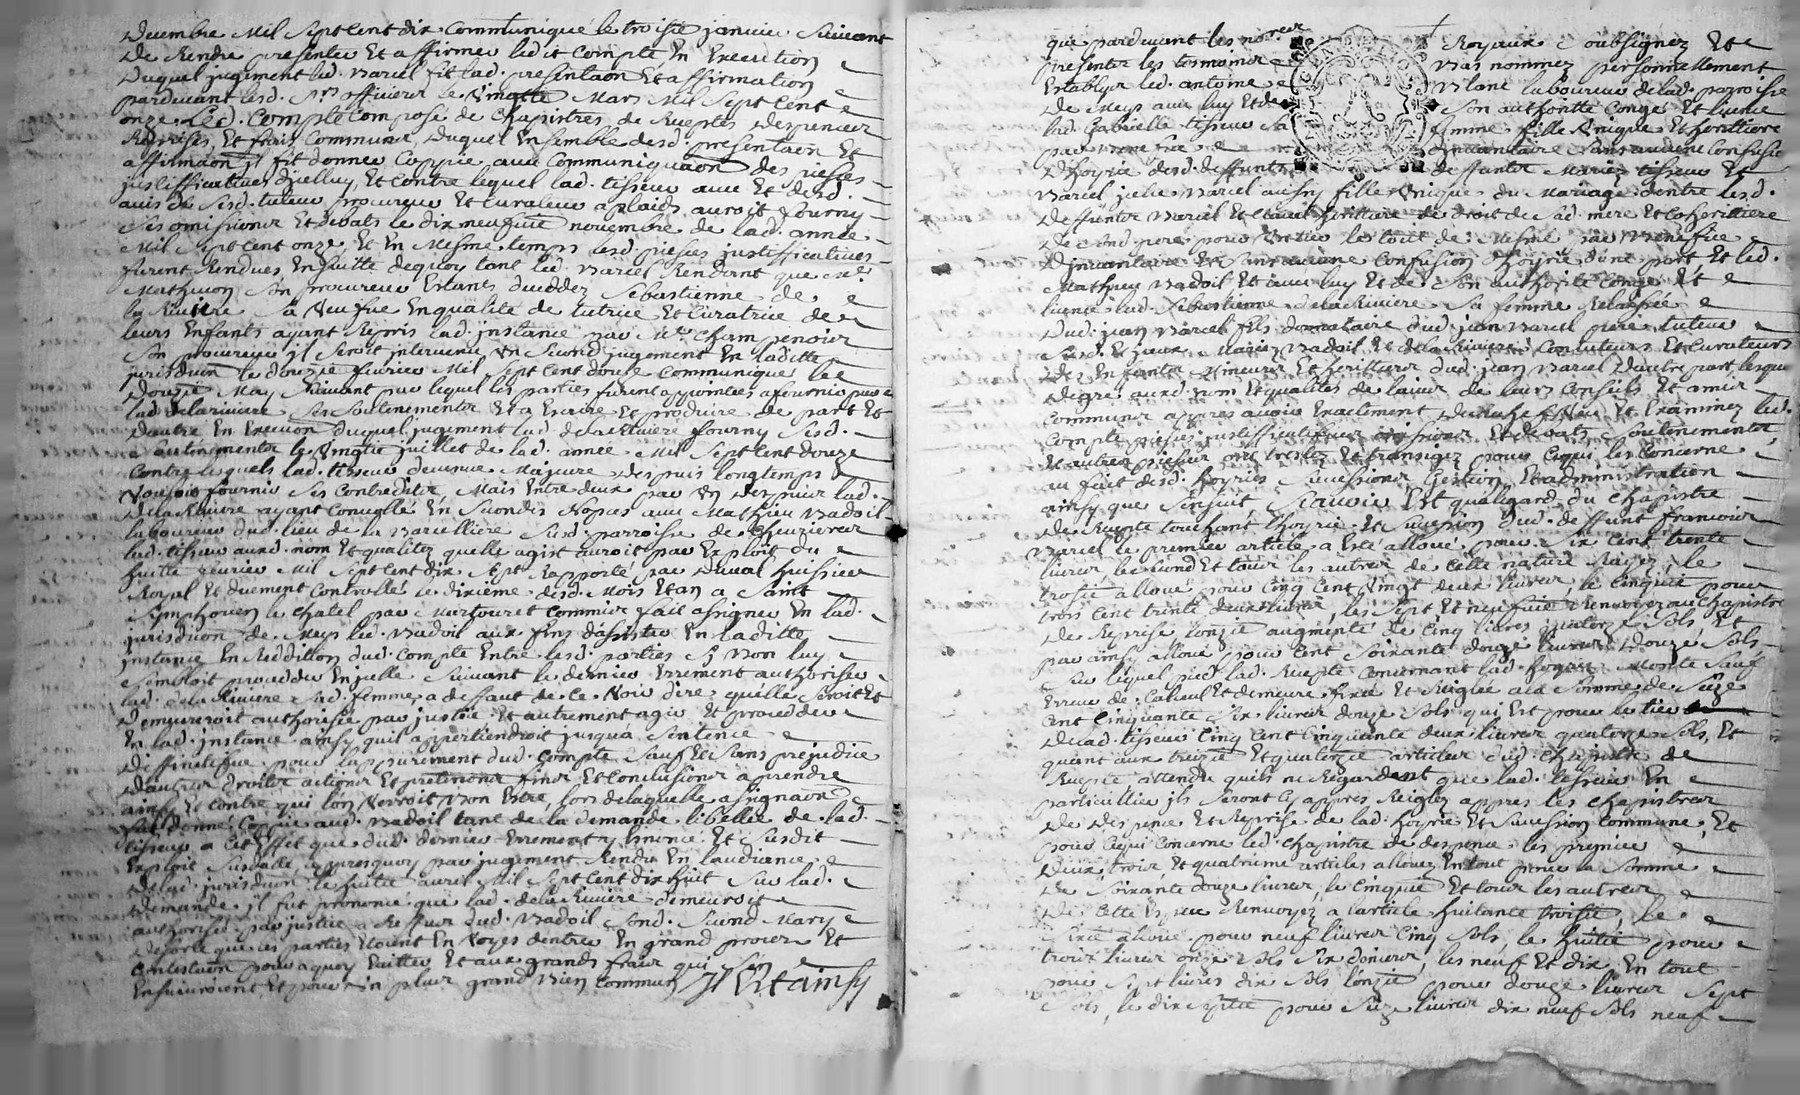 decembre Mil Sept Cent dix Communiqué le troisie janvier Suivant
de Rendre presenter Et affirmer ledit Compte, En Execution
duquel jugement led. Variel fit lad. presentaon Et affirmation
pardevant lesd. Srs officiers le Mars Mil Sept Cent
onze. Led. Compte Composé de Chapistres de Receptes despences
Reprises, Et frais Communs duquel Ensemble desd. presentaon Et
affirmaon il fit donner Coppie avec Communiquaon des piesses
justifficatives diceluy, Et Contre lequel lad. tisseur avec Et desd.
avis de Sesd. tuteur procureur Et Curateur a plaids auroit fourny
Ses omissions Et debats le dix neufvie novembre de lad. année
Mil Sept Cent onze, Et En Mesme temps lesd. piesses justifficatives
furent Rendues, En suitte dequoy tant led. Variel Rendant que Me
Mathevon Son procureur Estants deceddez Sebastienne de
la Riviere Sa Veufve En qualité de tutrice Et Curatrice de
leurs Enfants ayant Repris lad. instance par Me Champenois
Son procureur il Seroit intervenu Un Second jugement En laditte
jurisdion le douzie fevrier Mil Sept Cent douze Communiqué le
douzie May Suivant par lequel les parties furent appointées a fournir par
lad. delariviere Ses Soutenements Et a Escrire Et produire de part Et
dautre En Execuon duquel jugement lad. delaRiviere fourny Sesd.
Soutenements le Vingtie juillet de lad. année Mil Sept Cent douze
Contre lesquels lad. tisseur devenue Majeure despuis longtemps
Voulois fournir Ses Contredits, Mais Entre deux par Un despuis lad.
delaRiviere ayant Convollé En Secondes Nopces avec Mathieu Badoil
laboureur dud. lieu de la Varcelliere Susd. parroisse de Chevrieres
led. tisseur ausd. nom Et qualitez quelle agist auroit par Exploit du
huitie fevrier Mil Sept Cent dix Sept Rapporté par Duval huissier
Royal Et deument Controllé le dixieme desd. Mois Et an a Saint
Simphorien le Chatel par Martouret Commis fait assigner En lad.
jurisdion de Meys led. Badoil aux fins dassister En laditte
instance En Reddition dud. Compte Entre lesd. parties Si bon luy
Sembloit proceder En jcelle Suivant le dernier Errement authoriser
lad. delaRiviere Sad. femme, a deffaut de Ce Voir dire quelle Seroit Et
demeureroit authorisée par justice Et autrement agir Et proceder
En lad. instance ainsy quil appertiendroit jusqua Sentence
deffinitifve pour lappurement dud. Compte Sauf Et Sans prejudice
dautres droits actions Et pretentions fins Et Conclusions a prendre
ainsy Et Contre qui lon Verroit bon Estre, lors delaquelle assignaon
fut donné Coppie aud. Badoil tant de la demande libellée de lad.
tisseur a Cet Effet que dud. dernier Errement y Enoncé Et Susdit
Exploit Susdatté appresquoy par jugement Rendu En laudiance
de lad. jurisdion le huitie avril Mil Sept Cent dix huit Sur lad.
demande il fut prononcé que lad. delaRiviere demeuroit
authorisée par justice a Reffus dud. Badoil Sond. Second Mary
desorte que les parties Etoient En Voyes dentrer En grand proces Et
Contestaon pour aquoy Eviter Et aux grands frais qui Sen
Ensuivroient, Et pour Un plus grand bien Commun Il Est ainsy
que pardevant les nores Royaux Soubsignez Et
presenter les tesmoins Bas nommez personnellement
Estably led. antoine Blanc laboureur de lad. parroisse
de Meys avec luy Et de Son authorité Congé Et licence
lad. Gabrielle tisseur Sa femme fille Unique Et heritiere
par benefice dinventaire Sans aucune Confusion
dhoyrie desd. deffunts deffunts Mariez tisseur Et
Variel jcelle Variel aussy fille Unique du Mariage dentre lesd.
deffunts Variel Et heritiere de droit de Sad. mere Et Coheritiere
de Sond. pere pour Un tiers le tout de Mesme par benefice
dinventaire Et Sans aucune Confusion dhoyrie dune part Et led.
Mathieu Badoil Et avec luy Et de Son authorité Congé Et
licence lad. Sebastienne delaRiviere Sa femme Relaissée
dud. jean Variel fils donnataire dud. jean Variel pere tuteur
Susd. Et jceux Mariez Badoil Et delaRiviere Contuteurs Et Curateurs
des Enfants Mineurs Et heritiers dud. jean Variel dautre part, lesquels
degré ausd. nom Et qualités de lavis de leurs Conseils Et amis
Communs appres avoir Exactement Veu Et Examinez led.
Compte piesses justifficatives omissions Et debats Soutenements
Et autres piesses ont traitez Et transigez pour Cequi les Concerne
au fait desd. hoyries Successions Gestion Et administration
ainsy que Sensuit, Scavoir Est qualegard du Chapistre
de Recepte touchant lhoyrie Et Succession dud. deffunt francois
Variel le premier article a Esté alloué pour Six Cent trente
livres le Second Et tous les autres de Cette nature Rayez, le
troisie alloué pour Cinq Cent Vingt deux livres, le Cinquie pour
trois Cent trente deux livres, les Sept Et neufvie Renvoyez au Chapistre
de Reprise lonzie augmenté de Cinq livres quatorze Sols Et
par ainsy alloué pour Cent Soixante douze livres douze Sols
Sur lequel pied lad. Recepte Concernant lad. hoyrie Monte Sauf
Erreur de Calcul Et demeure fixée Et Reiglée ala Somme de Seize
Cent Cinquante Six livres douze Sols qui Est pour le tiers
de lad. tisseur Cinq Cent Cinquante deux livres quatorze Sols, Et
quant aux treizie Et quatorzie articles dud. Chapistre de
Recepte attendu quils ne Regardent que lad. tisseur En
particullier ils Seront Cy appres Reiglez appres les Chapistres
de despence Et Reprise de lad. hoyrie Et Succession Commune, Et
pour Cequi Concerne led. Chapistre de despence les premier
deux, trois, Et quatrieme articles allouez En tout pour la Somme
de Soixante douze livres, le Cinquie Et tous les autres
de Cette Espece Renvoyez a larticle huitante troisie, le
Sixie alloué pour neuf livres Cinq Sols, le huitie pour
trois livres onze Sols Six deniers, les neuf Et dix En tout
pour Sept livres dix Sols lonzie pour douze livres Sept
Sols, le dix Septie pour Seize livres dix neuf Sols neuf